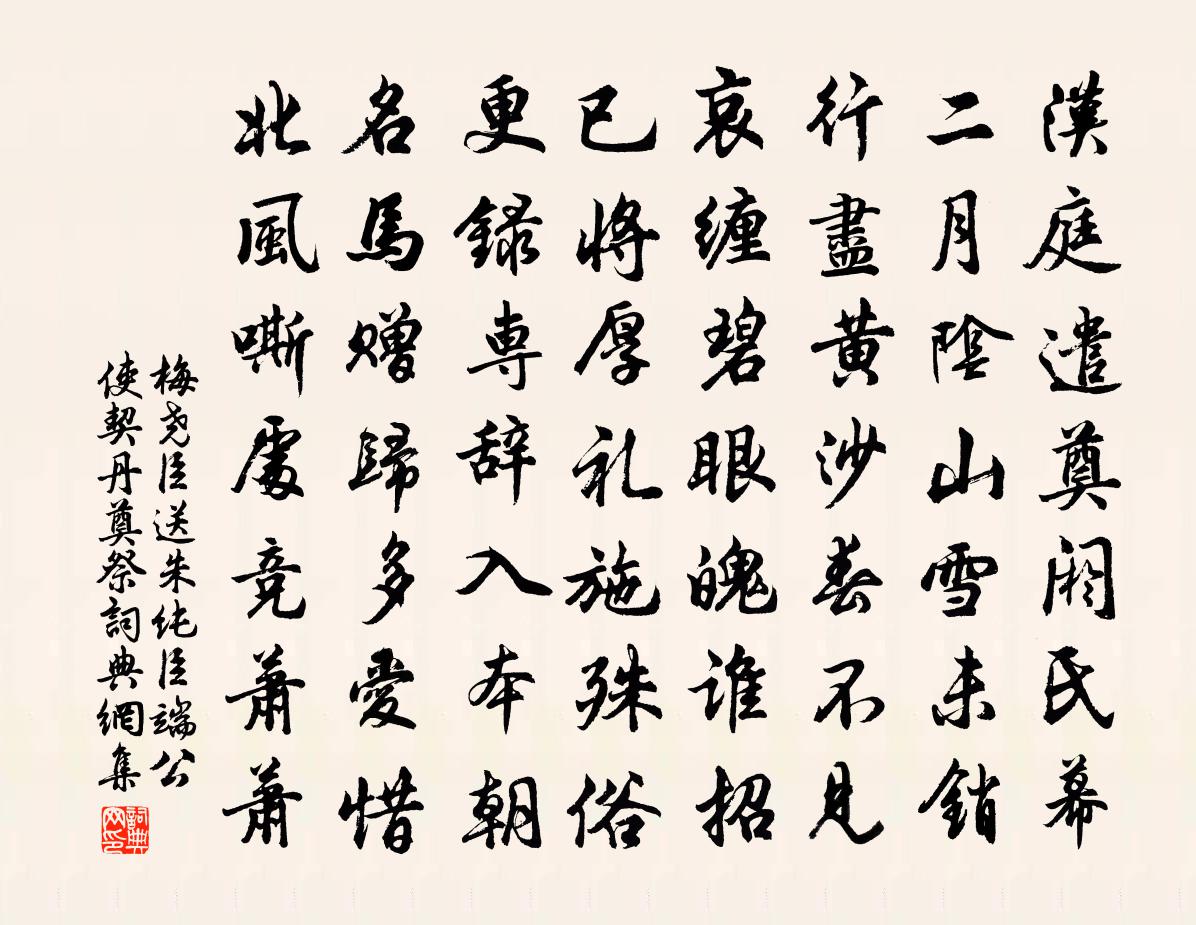 漢庭遣奠閼氏幕
二月陰山雪未銷
行盡黃沙春不見
哀纏碧眼魄誰招
已將厚礼施殊俗
更録専辞入本朝
名馬贈歸多愛惜
北風嘶處竞蕭蕭
梅尧臣送朱纯臣端公
使契丹奠祭詞典網集
詞典
网印